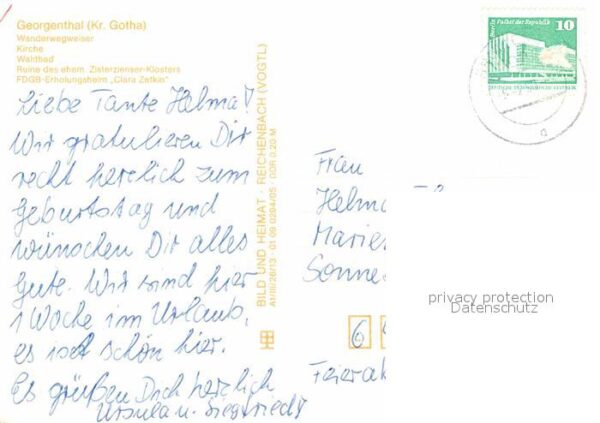 Georgenthal (Kr. Gotha)
Wanderwegweiser
Kirche
Waldbad
Ruine des ehem. Zisterzienser-Klosters
FDGB-Erholungsheim „Clara Zetkin“
Liebe Tante Helma!
Wir gratulieren Dir
recht herzlich zum
Geburtstag und
wünschen Dir alles
Gute. Wir sind hier
1 Woche im Urlaub,
es ist schön hier.
Es grüßen Dich herzlich
Ursula u. Siegfried
BILD UND HEIMAT · REICHENBACH (VOGTL)
01 09 0204/05 · DDR 0,20 M
Berlin Palast der Republik
10
Frau
Helma
Sonne
6
privacy protection
Datenschutz